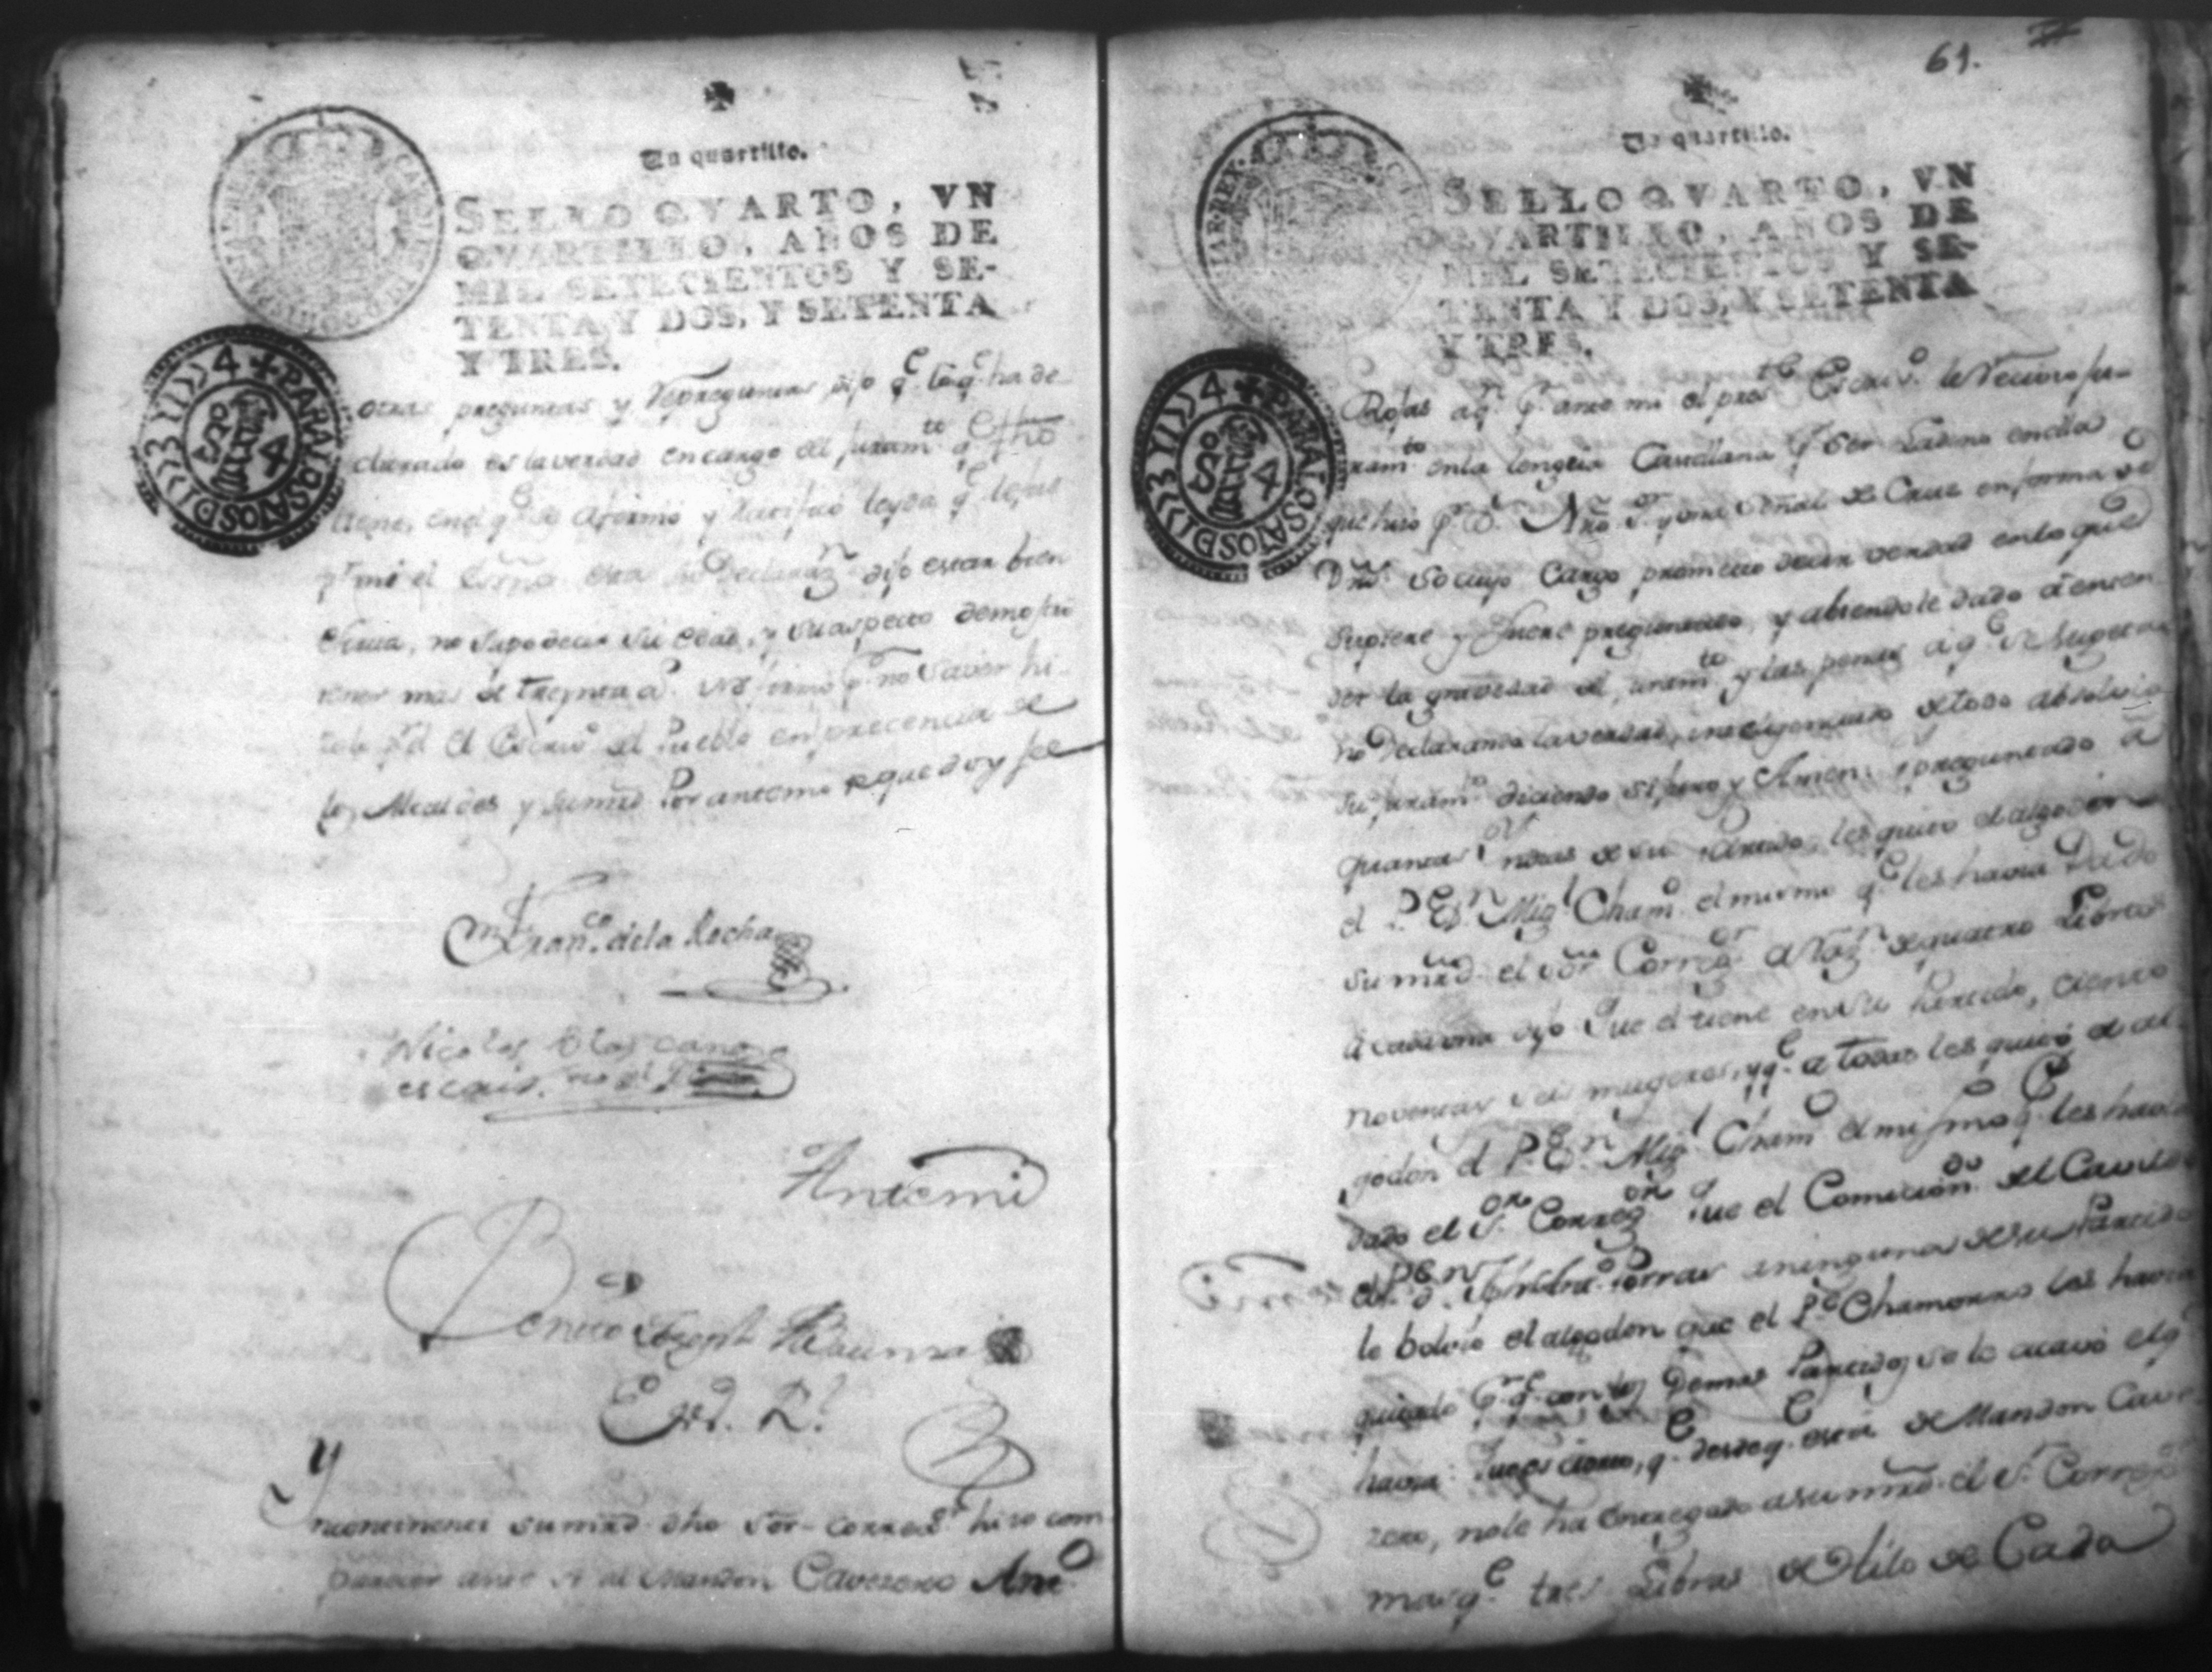 Un quartillo.
SELLO QVARTO, VN
QVARTILLO, AÑOS DE
MIL SETECIENTOS Y SE-
TENTA Y DOS, Y SETENTA
Y TRES.
PARA LOS AÑOS DE 1773 Y 1774
SD 4
otras preguntas y Repreguntas, dijo q.e lo q.e ha de
clarado es la verdad en cargo del juram.to q.e fho
tiene, en el q.e se afirmó y Ratificó leyda q.e le fue
p.r mi el esta su Declaraz.n dijo estar bien
escrita, no supo decir su edad, y su aspecto demostró
tener mas de treynta a.s no firmó p.r no saver hi-
zolo p.r él el Escriv.o del Pueblo en precencia de
los Alcaldes y su mrd. Por ante mi de que doy fee
Fran.co de la Rocha
Nicolas Blas cano
escriv.no del
Ante mi
Benito
Es.no R.l
Yncontinenti su mrd. dho Sor. Correg.r hizo com
parecer ante si al Mandon Cavezero Ant.o
61.
Un quartillo.
SELLO QVARTO, VN
QVARTILLO, AÑOS DE
MIL SETECIENTOS Y SE-
TENTA Y DOS, Y SETENTA
Y TRES.
PARA LOS AÑOS DE 1773 Y 1774
SD 4
Rojas a q.n p.r ante mi el pres.te Escriv.o le Recivio ju-
ram.to en la lengua Castellana p.r ser Ladino en ella
que hizo p.r D.s Nño S.or y una Señal de Cruz en forma de
Dro. so cuyo Cargo prometio decir verdad en lo que
supiere y fuere preguntado, y abiendole dado á enten
der la gravedad del juram.to y las penas a q.e se sugeta
no Declarando la verdad, inteligenciado de todo absolvio
su juram.to diciendo si juro y Amen: y preguntado á
quantas Yndias de su Partido les quitó el algodon
el P.e D.n Mig.l Cham.o el mismo q.e les havia Dado
su mrd. el Sor Correg.or á raz.n de quatro Libras
á cada una dijo Que el tiene en su Partido, ciento
noventa y seis mugeres, y q.e a todas les quitó el al
godon el P.e D.n Mig.l Cham.o el mismo q.e les havia
dado el S.or Correg.or Que el Comicion.do del Cavildo
el P.e D.n Porras a ninguna de su Partido
le bolvio el algodon que el P.e Chamorro les havia
quitado p.r q.e con los Demas Partidos se le acavó el q.e
havia. Que es cierto, q.e desde q.e está de Mandon Cave
zero, no le ha entregado a su mrd. el S.r Correg.or
mas q.e tres Libras de Hilo de Cada